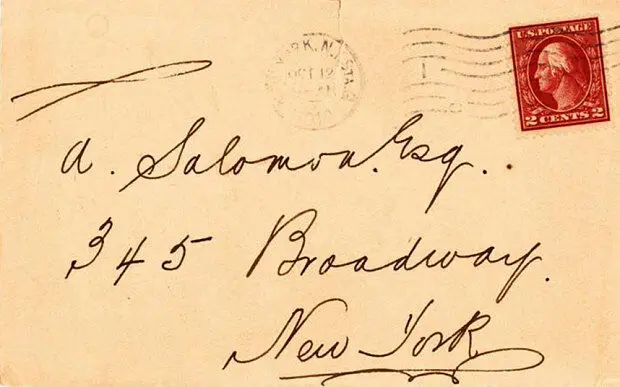 U.S. POSTAGE
2 CENTS 2
RK, N.Y. STA.
OCT 12
A. Salomon. Esq.
345 Broadway.
New York